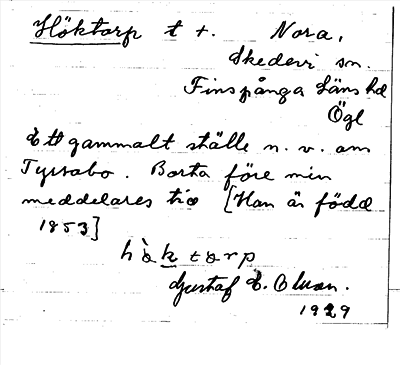 Höktorp t +. Nora,
Skedevi sn.
Finspånga Läns hd
Ögl
Ett gammalt ställe n. v. om
Tyrsabo. Borta före min
meddelares tid [Han är född
1853]
hòktorp
Gustaf E. Olsson.
1929